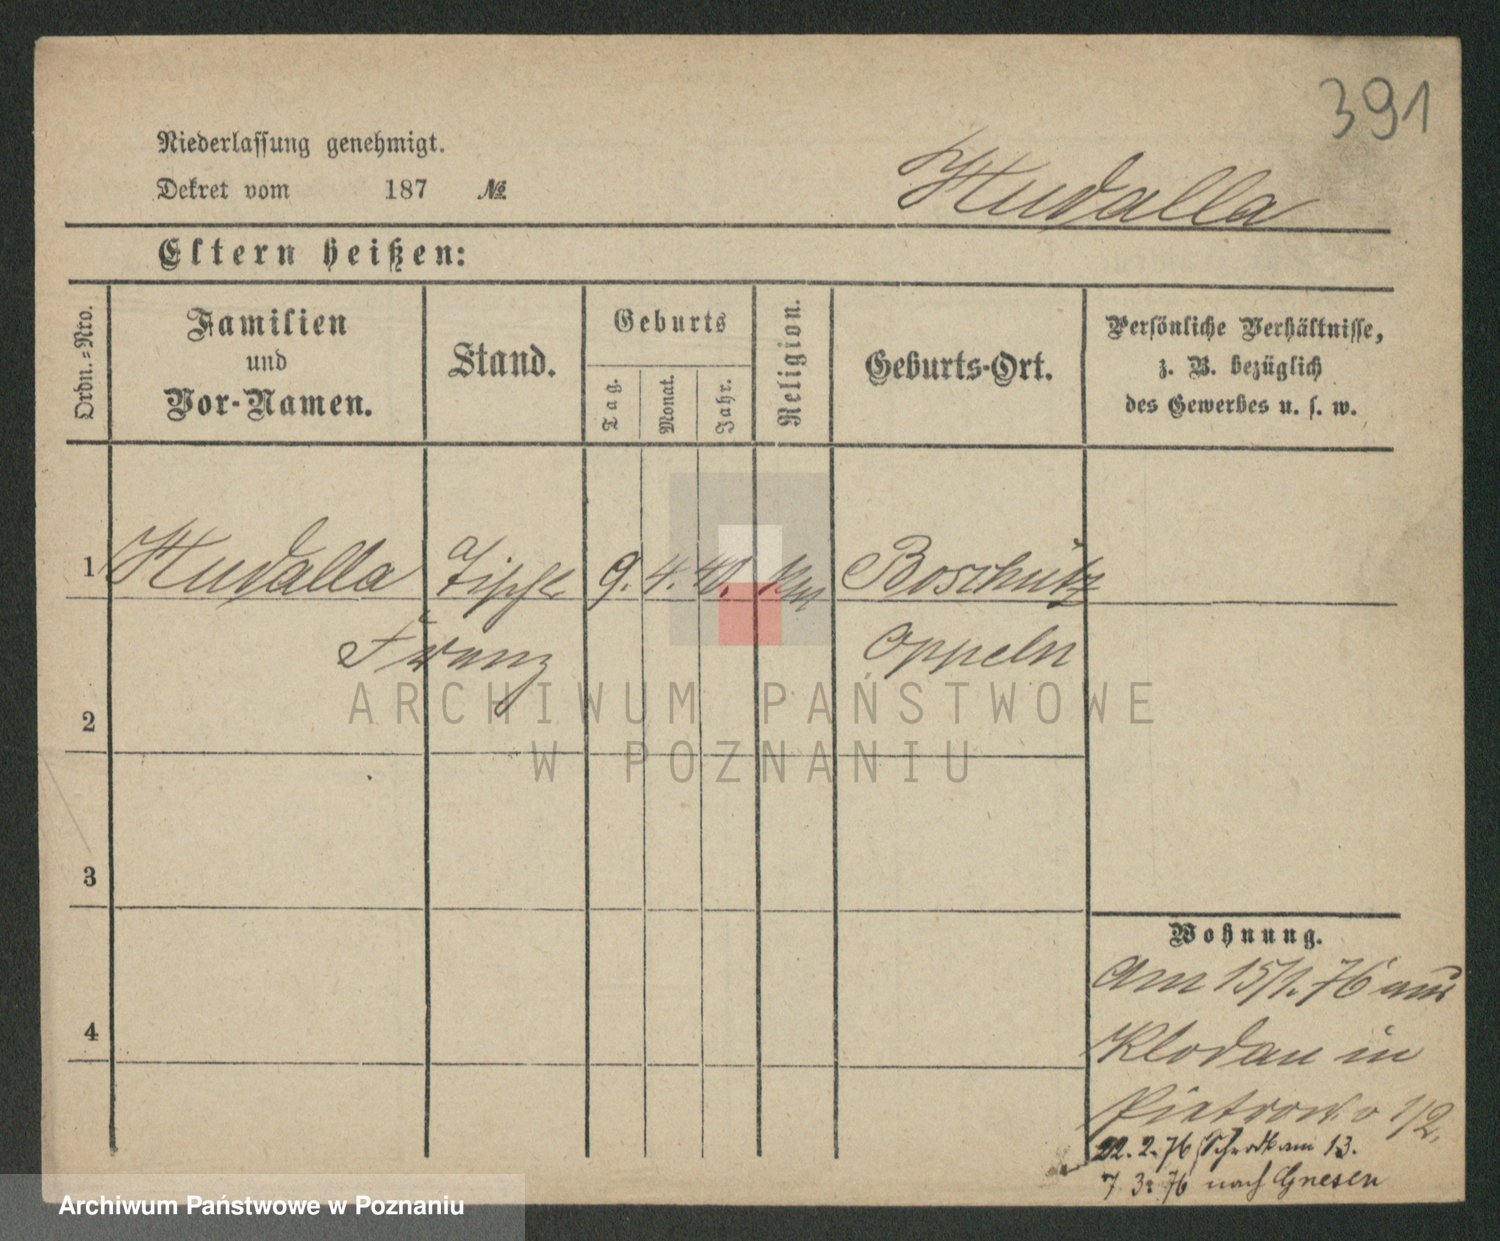 391
Niederlassung genehmigt.
Dekret vom 187 №
Hudalla
Eltern heißen:
Ordn.=Nro.
Familien
und
Vor-Namen.
Stand.
Geburts
Tag.
Monat.
Jahr.
Religion.
Geburts-Ort.
Persönliche Verhältnisse,
z. B. bezüglich
des Gewerbes u. s. w.
1 Hudalla Tischler 9. 4. Boschütz
Franz Oppeln
2
3
4
Wohnung.
Am 15/1. 76 aus
Klodau in
Piotrowo 1/2.
22. 2. 76 Schrodkam 13.
7 3. 76 nach Gnesen
ARCHIWUM PAŃSTWOWE
W POZNANIU
Archiwum Państwowe w Poznaniu